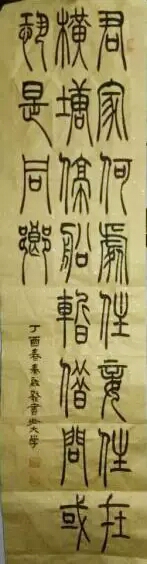 君家何處住妾住在
橫塘停船暫借問或
恐是同鄉
丁酉春秦書大学